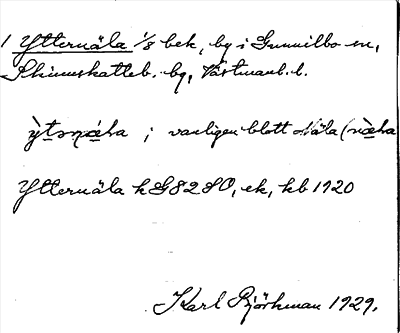 1 Ytternäla 1/8 bek, by i Gunnilbo sn,
Skinnskatteb. bg, Västmanl. l.
; vanligen blott Näla (
Ytternäla k G8280, ek, kb 1920
Karl Björkman 1929.